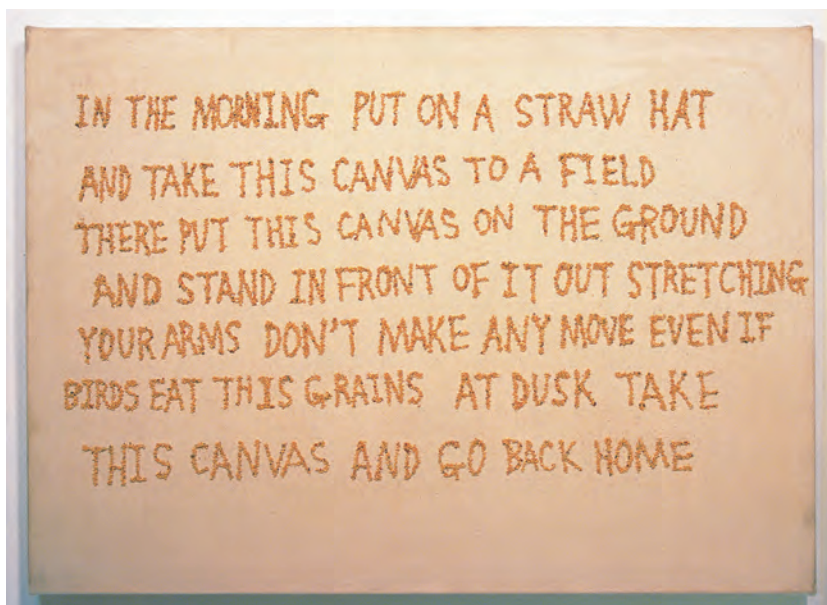 IN THE MORNING PUT ON A STRAW HAT
AND TAKE THIS CANVAS TO A FIELD
THERE PUT THIS CANVAS ON THE GROUND
AND STAND IN FRONT OF IT OUT STRETCHING
YOUR ARMS DON'T MAKE ANY MOVE EVEN IF
BIRDS EAT THIS GRAINS AT DUSK TAKE
THIS CANVAS AND GO BACK HOME